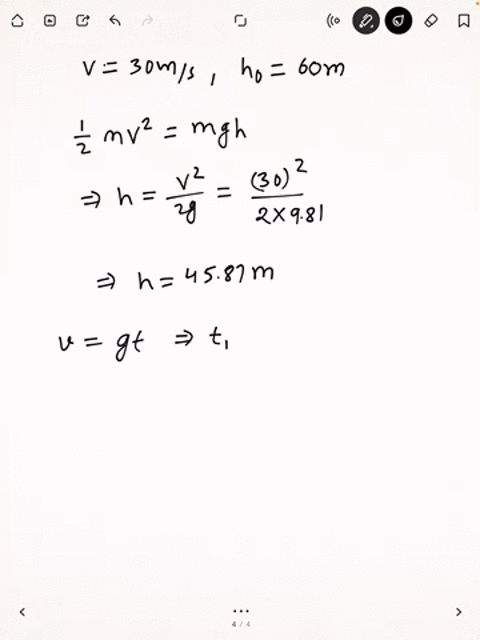 v = 30m/s , h₀ = 60m
½ mv² = mgh
⇒ h = v²/2g = (30)²/2×9.81
⇒ h = 45.87m
v = gt ⇒ t₁
4 / 4